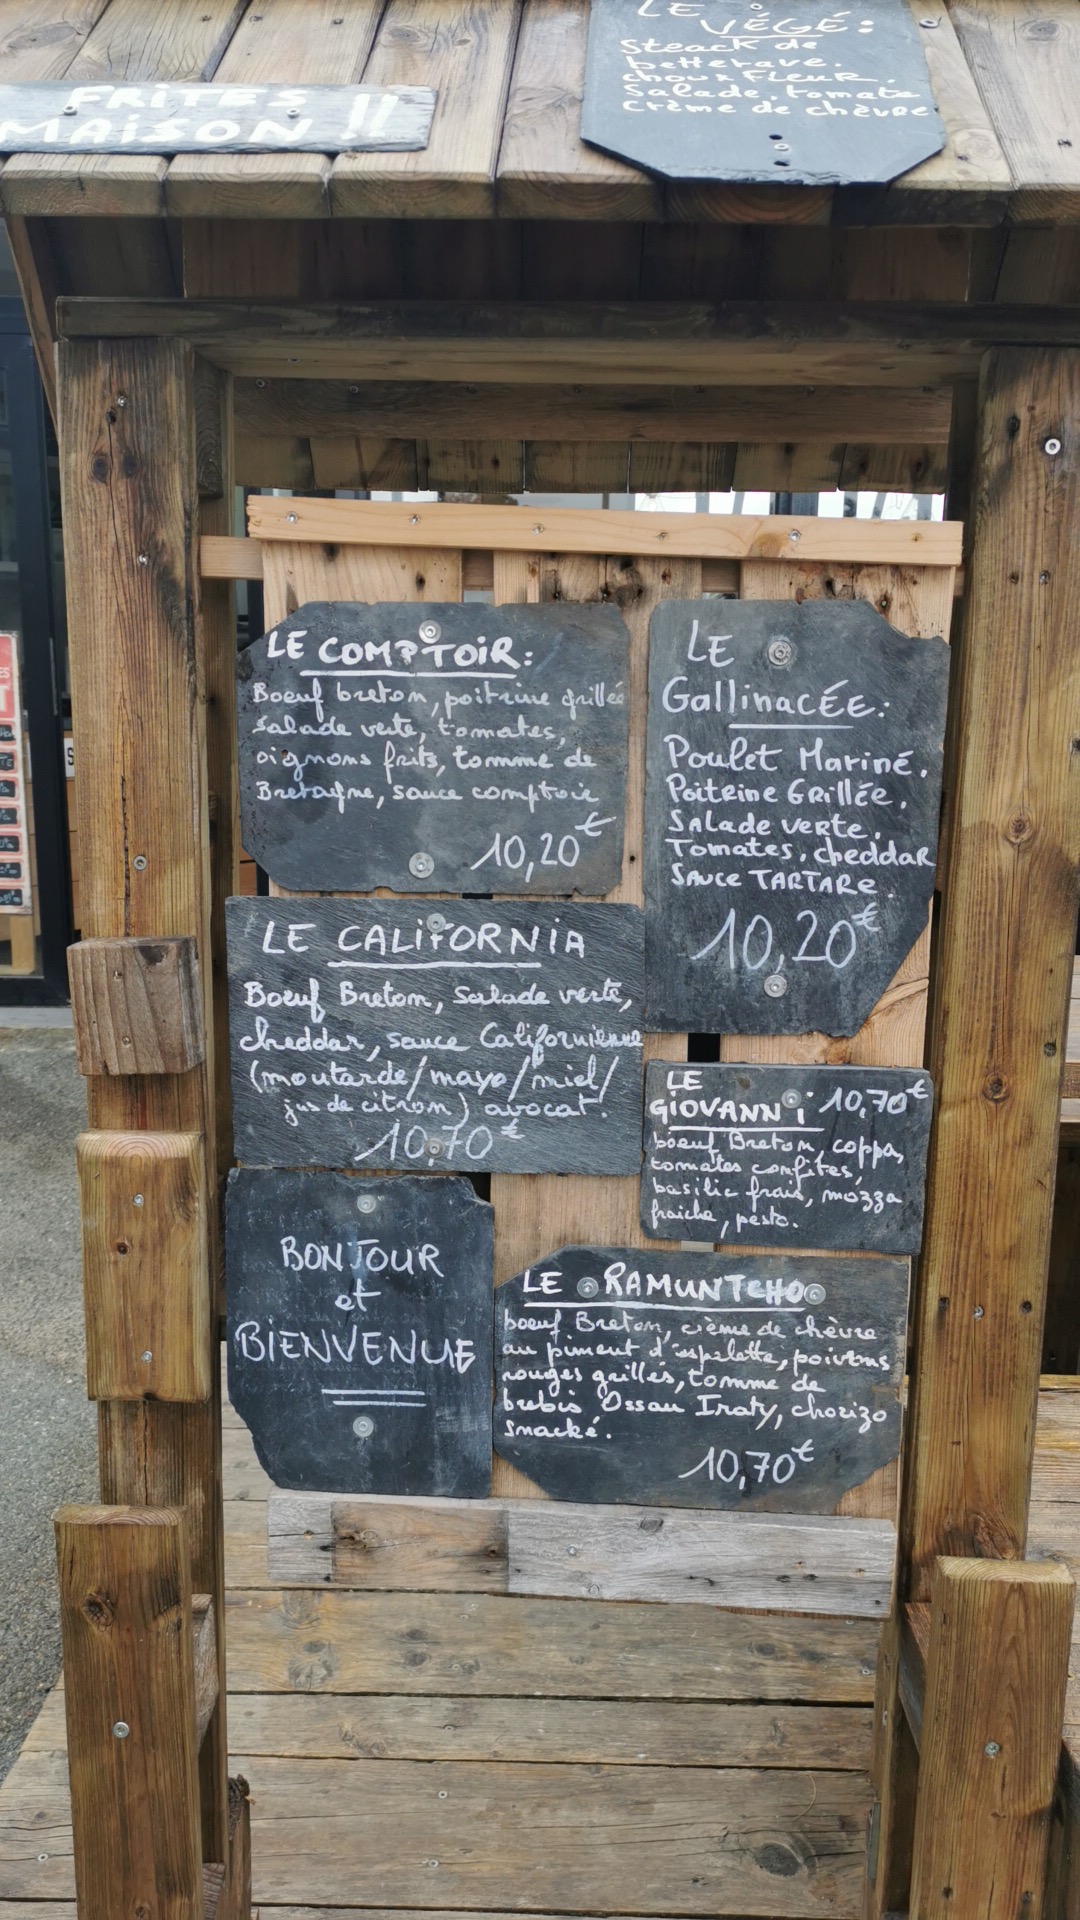 LE
VÉGÉ:
Steack de
betterave.
choux Fleur.
Salade, tomate
Crème de chèvre
FRITES
MAISON !!
LE COMPTOIR:
Boeuf breton, poitrine grillée
salade verte, tomates,
oignons frits, tomme de
Bretagne, sauce comptoir
10,20€
LE
GallinacÉE:
Poulet Mariné.
Poitrine Grillée.
Salade verte.
Tomates, cheddar
Sauce TARTARE.
10,20€
LE CALIFORNIA
Boeuf Breton, Salade verte,
cheddar, sauce Californienne
(moutarde/mayo/miel/
jus de citron) avocat.
10,70€
LE
GIOVANNi 10,70€
boeuf Breton, coppa,
tomates confites,
basilic frais, mozza
fraiche, pesto.
BONJOUR
et
BIENVENUE
LE RAMUNTCHO
boeuf Breton, crème de chèvre
au piment d'espelette, poivrons
rouges grillés, tomme de
brebis Ossau Iraty, chorizo
snacké.
10,70€